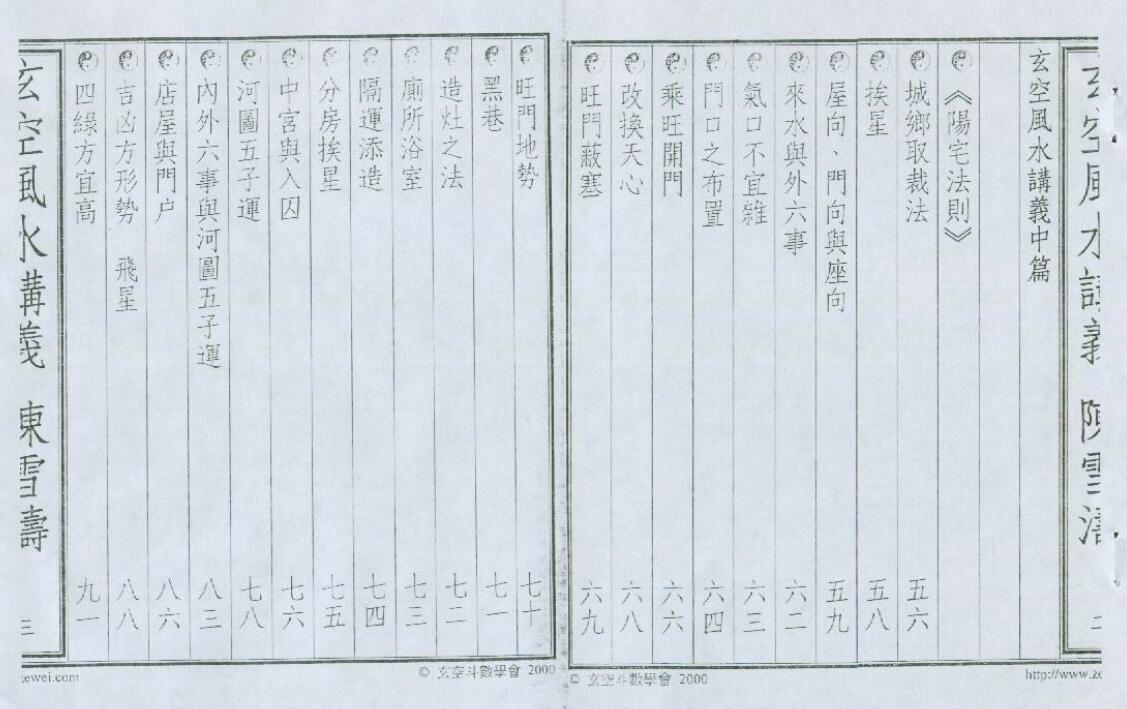 玄空風水講義 陳雪濤 二
玄空風水講義中篇
《陽宅法則》
城鄉取裁法 五六
挨星 五八
屋向、門向與座向 五九
來水與外六事 六二
氣口不宜雜 六三
門口之布置 六四
乘旺開門 六六
改換天心 六八
旺門蔽塞 六九
© 玄空斗數學會 2000
http://www.ze
旺門地勢 七十
黑巷 七一
造灶之法 七二
廁所浴室 七三
隔運添造 七四
分房挨星 七五
中宮與入囚 七六
河圖五子運 七八
內外六事與河圖五子運 八三
店屋與門戶 八六
吉凶方形勢 飛星 八八
四綠方宜高 九一
玄空風水講義 陳雪濤 三
© 玄空斗數學會 2000
zewei.com